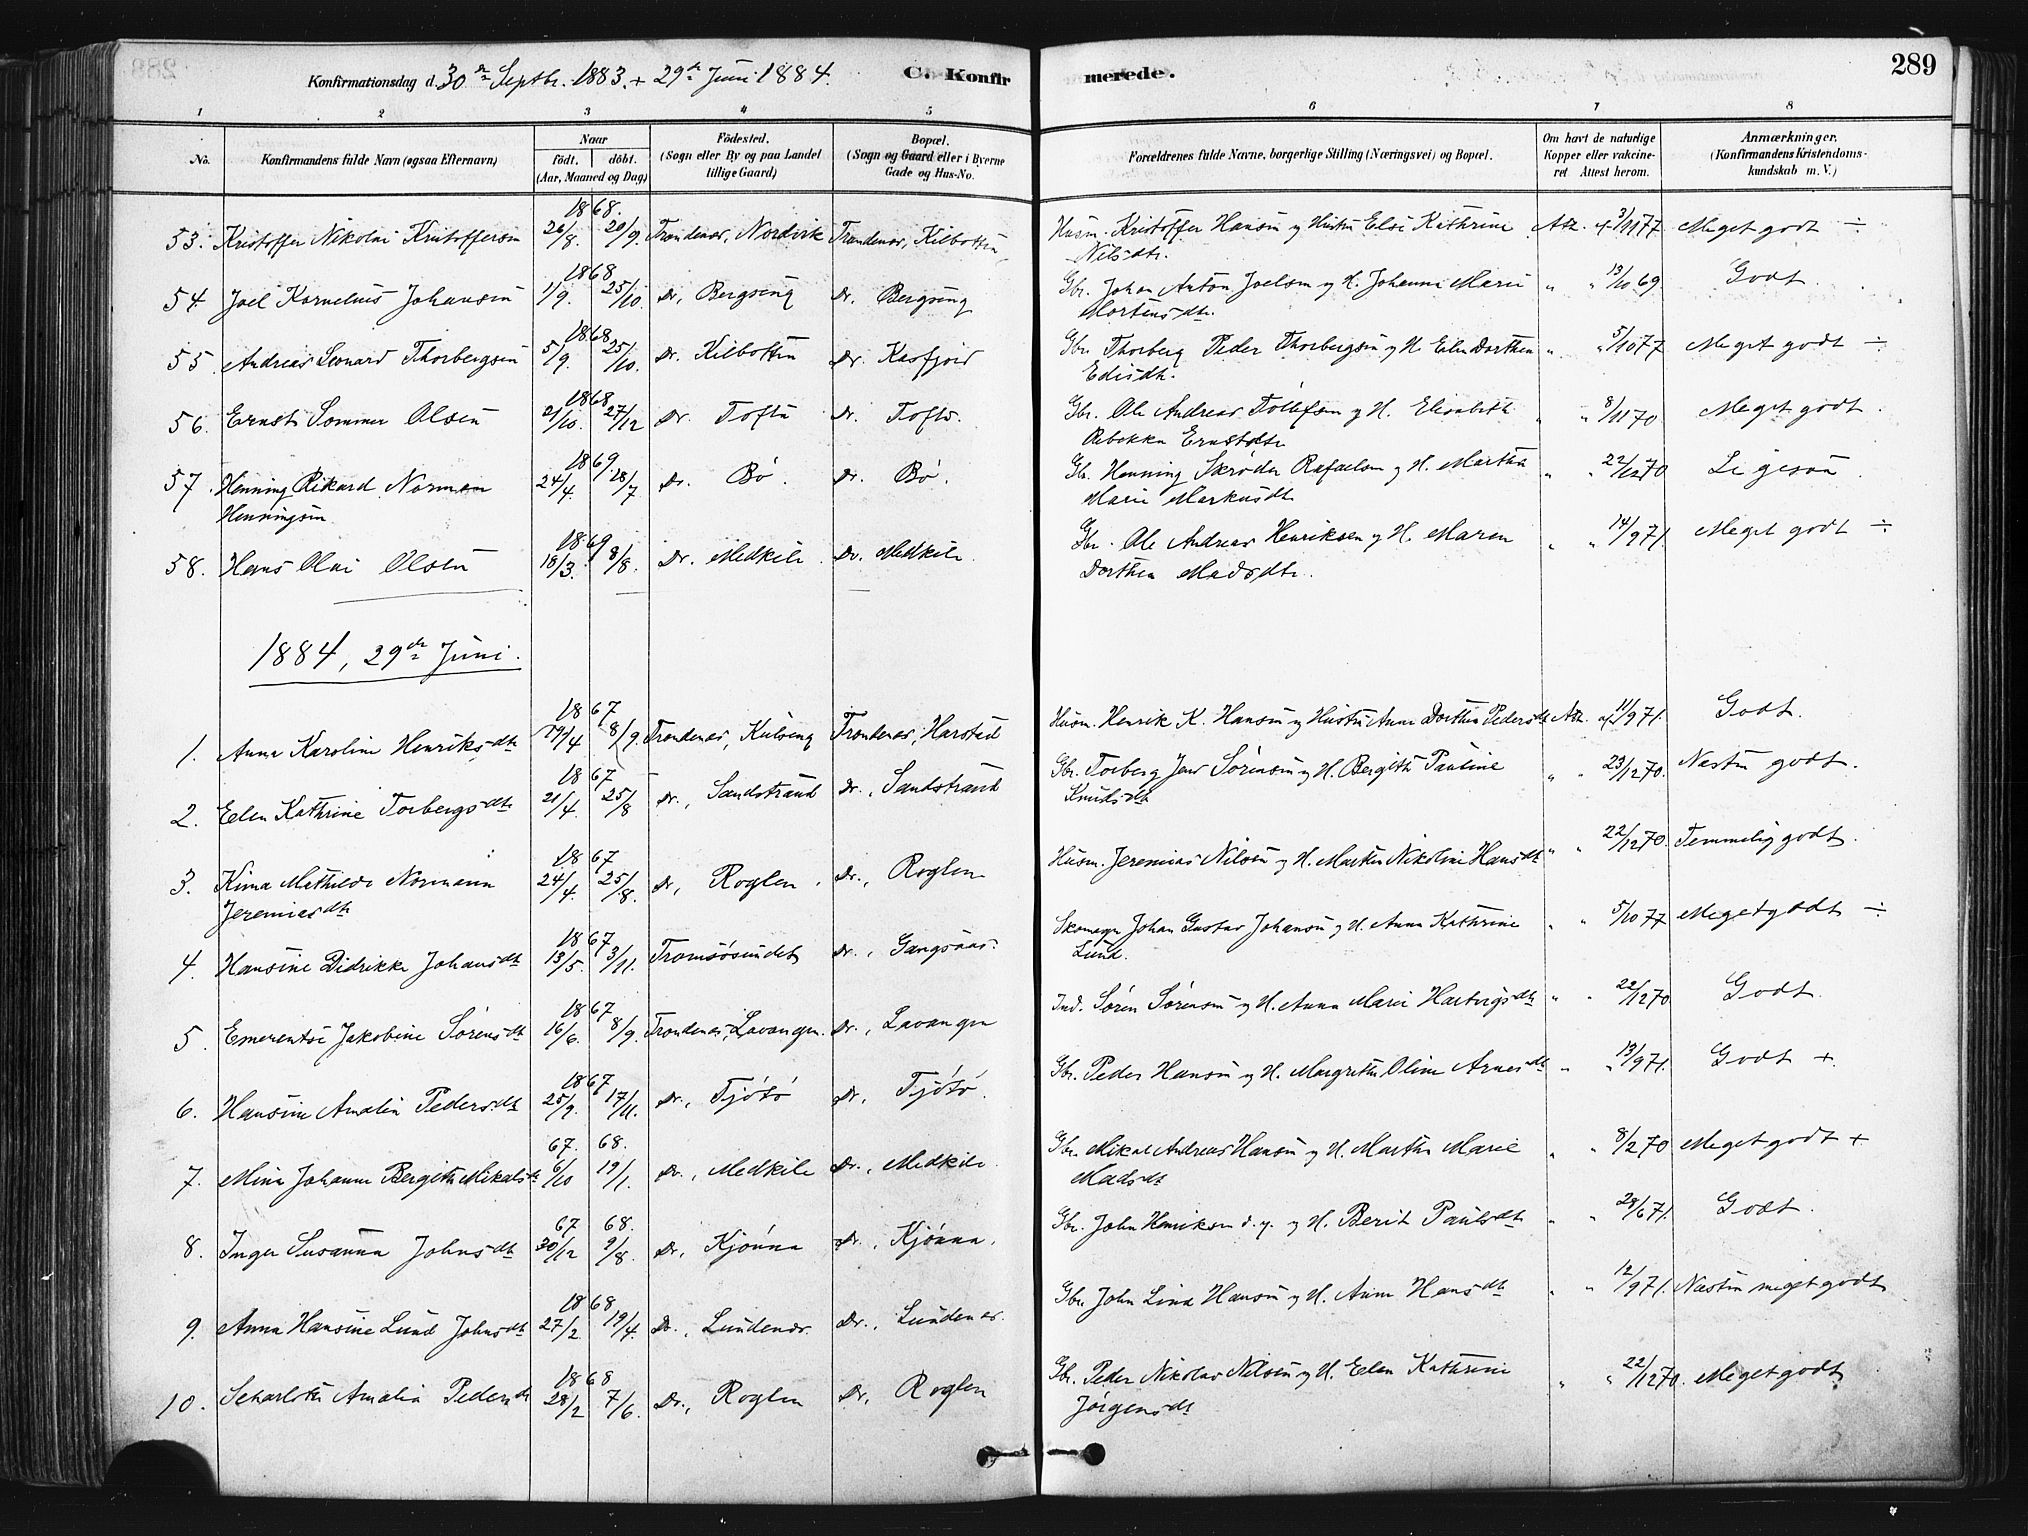 Konfirmationsdag d. 30te Septbr. 1883. + 29de Juni 1884. C. Konfirmerede. 289
1 2 3 4 5 6 7 8
No. Konfirmandens fulde Navn (ogsaa Efternavn) Naar födt. döbt. (Aar, Maaned og Dag) Födested. (Sogn eller By og paa Landet tillige Gaard) Bopæl. (Sogn og Gaard eller i Byerne Gade og Hus-No. Forældrenes fulde Navne, borgerlige Stilling (Næringsvei) og Bopæl. Om havt de naturlige Kopper eller vakcineret Attest herom. Anmærkninger. (Konfirmandens Kristendomskundskab m. V.)
1868.
53. Kristoffer Nikolai Kristoffersen 26/8. 20/9. Trondenes, Nordvik Trondenes, Kilbotten Husm. Kristoffer Hansen og Hustru Else Kathrine Att. af 3/11 77 Meget godt ÷
Nilsdtr.
1868
54 Joel Kornelius Johansen 1/9. 25/10. Do, Bergseng Do. Bergseng Gbr. Johan Anton Joelsen og H. Johanne Marie " " 13/10 69. Godt.
Mortensdtr.
1868
55. Andreas Leonard Thorbergsen 5/9. 25/10. Do. Kilbotten Do. Kasfjord Gbr. Thorberg Peder Thorbergsen og H. Elen Dorthea " " 5/10 77 Meget godt ÷
Edisdtr.
1868
56. Ernst Sommer Olsen 21/10. 27/12 Do. Toften Do. Toften. Gbr. Ole Andreas Tollefsen og H. Elisabeth " " 8/11 70 Meget godt.
Rebekka Ernstdtr.
1869.
57. Henning Rikard Norman 24/4. 18/7 Do. Bö. Do. Bö. Gbr. Henning Skröder Rafaelsen og H. Martha " " 22/12 70 Ligesaa.
Henningsen Marie Markusdtr.
1869
58. Hans Olai Olsen 18/3. 8/8. Do. Medkile. Do. Medkile Gbr. Ole Andreas Henriksen og H. Maren " " 14/9 71. Meget godt ÷
Dorthea Madsdtr.
1884, 29de Juni.
1867
1. Anna Karoline Henriksdtr 19/4 8/9. Trondenes, Kulseng Trondenes, Harstad Husm. Henrik K. Hansen og Hustru Anne Dorthea Pedersdtr Att. af 11/9 71. Godt.
1867
2. Elen Kathrine Torbergsdtr 21/4. 25/8 Do., Sandstrand Do., Sandstrand Gbr. Torberg Jens Sörensen og H. Bergith Pauline " " 23/12 70. Næsten godt.
Knudsdtr
1867
3. Kima Mathilde Normann 24/4. 25/8. Do, Roglen. Do., Roglen Husm. Jeremias Nilsen og H. Martha Nikoline Hansdtr " " 22/12 70. Temmelig godt.
Jeremiasdtr
1867
4. Hansine Didrikke Johansdtr 13/5. 3/11. Tromsösundet Do., Gangsaas. Skomager Johan Gustav Johansen og H. Anna Kathrine " " 5/10 77 Meget godt ÷
Lund.
1867
5. Emerentse Jakobine Sörensdtr 16/6. 8/9. Trondenes, Lavangen. Do., Lavangen Ind. Sören Sörensen og H. Anna Marie Hartvigsdtr " " 22/12 70 Godt.
1867
6. Hansine Amalia Pedersdtr 25/9. 17/11. Do., Tjötö Do, Tjötö. Gbr. Peder Hansen og H. Margrethe Oline Arnesdtr " " 13/9 71. Godt +
67. 68.
7. Mina Johanne Bergithe Mikalsdtr 6/10 19/1. Do., Medkile Do., Medkile. Gbr. Mikal Andreas Hansen og H. Martha Marie " " 8/2 70 Meget godt +
Madsdtr
67 68.
8. Inger Susanna Johnsdtr 30/12 9/8. Do, Kjönna Do., Kjönna. Gbr. John Henriksen d. y. og H. Berit Paulsdtr " " 28/6 71. Godt.
1868
9. Anna Hansine Lund Johnsdtr 27/2. 19/4. Do., Lundenes. Do., Lundenes. Gbr. John Lind Hansen og H. Anne Hansdtr " " 12/9 71. Næsten meget godt
1868
10. Scharlotte Amalia Pedersdtr 28/2 7/6. Do., Roglen Do, Roglen Gbr. Peder Nikolai Nilsen og H. Elen Kathrine " " 22/12 70. Meget godt
Jörgensdtr